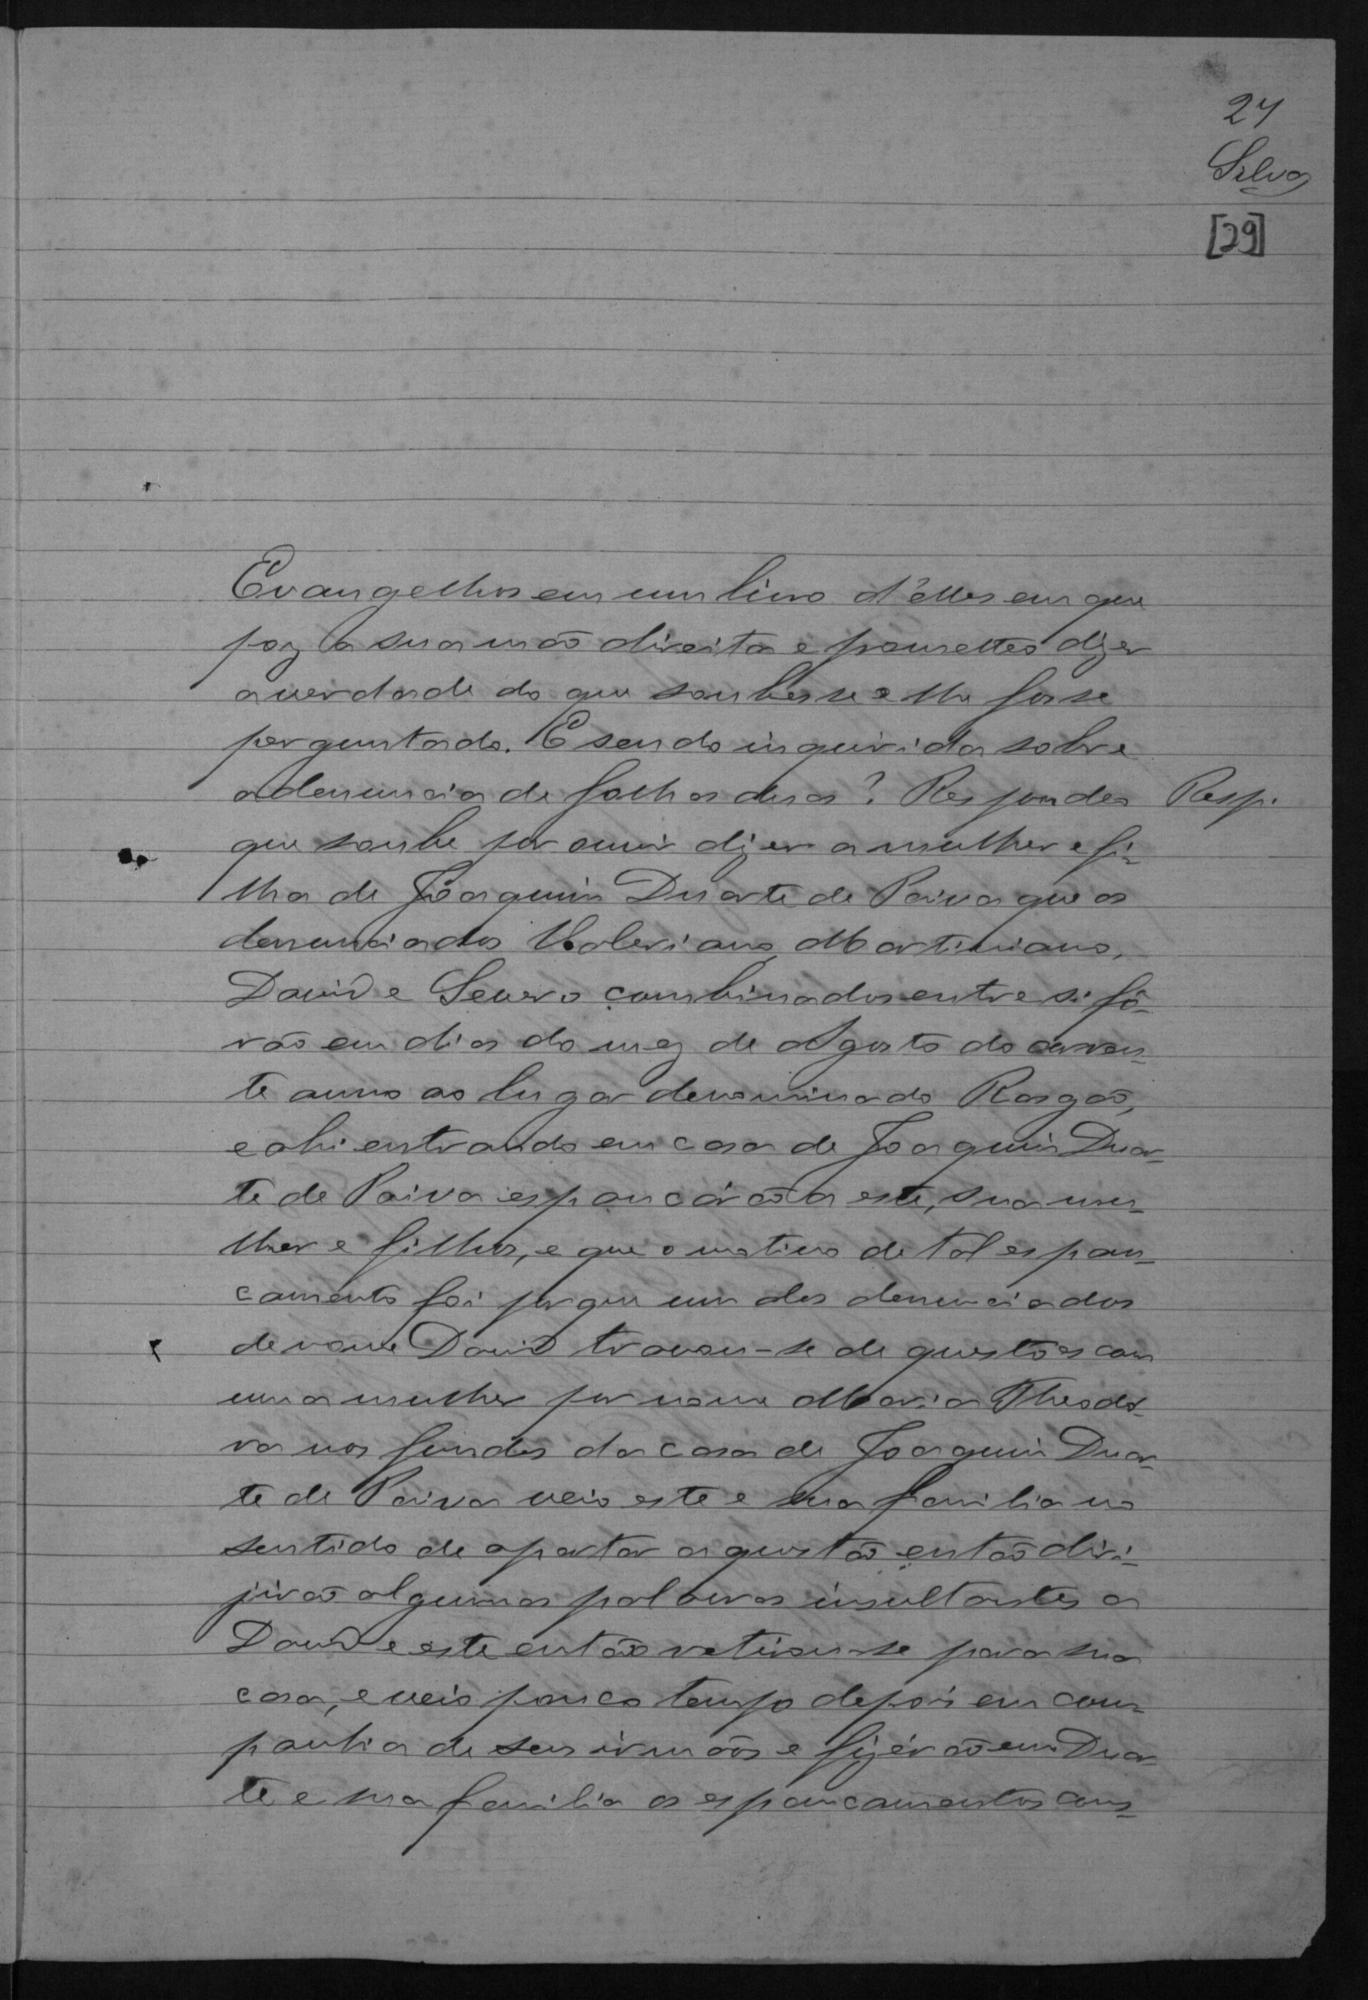 24
Silva
[29]
Evangelhos em um livro d'elles em que
poz a sua mão direita e prometteo dizer
a verdade do que soubesse e lhe fosse
perguntado. E sendo inquirida sobre
a denuncia de folhas duas? Respondeo Resp.
que soube por ouvir dizer a mulher e fi-
lha de Joaquim Duarte de Paiva que os
denunciados Valeriano, Martiniano,
David e Severo combinados entre si fô-
rão em dias do mez de Agosto do corren-
te anno ao lugar denominado Rasgão,
e ahi entrando em casa de Joaquim Duar-
te de Paiva espancárão a este, sua mu-
lher e filhos, e que o motivo de tal espan-
camento foi porque um dos denunciados
de nome David travou-se de questões com
uma mulher por nome Maria Theodo-
ra nos fundos da casa de Joaquim Duar-
te de Paiva veio este e sua familia no
sentido de apartar a questão então diri-
jirão algumas palavras insultantes a
David e este então retirou-se para sua
casa, e veio pouco tempo depois em com-
panhia de seus irmãos e fizérão em Duar-
te e sua familia os espancamentos cons-